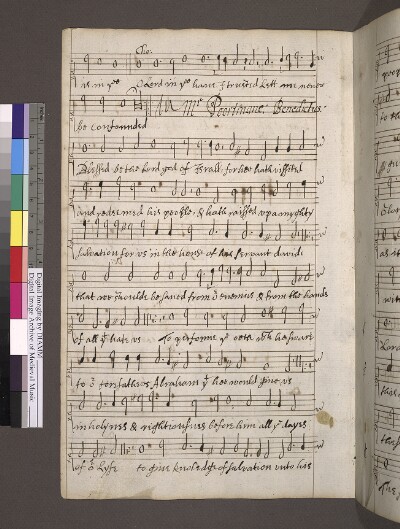 Cho:
is in yͤ O Lord in yͤ haue I trusted lett me never
be confounded
Mʳ Benedictus
Blessed be the Lord god of Israell for hee hath visited
and redeemed his people, & hath raised up a mighty
salvation for us in the house of his servant david
that wee should be saved from oʳ enemies & from the hands
of all yᵗ hate us To performe yᵉ oath wᶜʰ he sware
to oʳ forefather Abraham yᵗ hee would give us
in holynes & rightiousnes before him all yᵉ dayes
of oʳ lyfe to give knoledge of salvation unto his
Digital Imaging by DIAMM
Digital Image Archive of Medieval Music